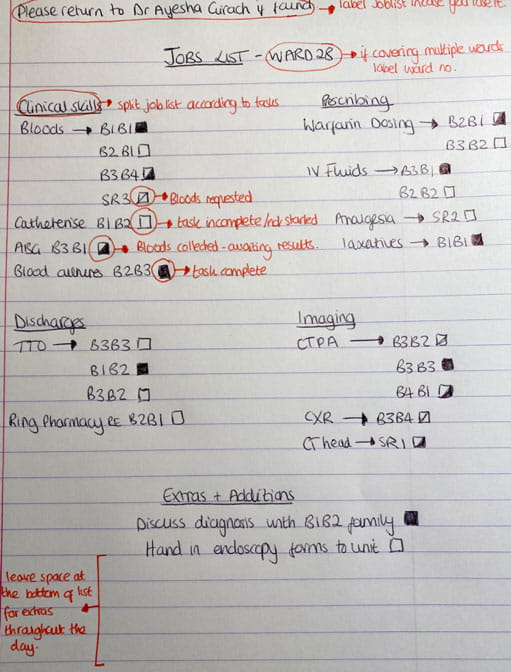 Please return to Dr Ayesha Girach if found → label joblist incase you lose it.
JOBS LIST - WARD 28 → if covering multiple wards label ward no.
Clinical skills → split job list according to tasks
Bloods → B1B1
B2B1
B3B4
SR3 → Bloods requested
Catheterise B1B2 → task incomplete/not started
ABG B3B1 → Bloods collected - awaiting results.
Blood cultures B2B3 → task complete
Prescribing
Warfarin Dosing → B2B1
B3B2
IV Fluids → B3B1
B2B2
Analgesia → SR2
laxatives → B1B1
Discharges
TTO → B3B3
B1B2
B3B2
Ring Pharmacy RE B2B1
Imaging
CTPA → B3B2
B3B3
B4B1
CXR → B3B4
CT head → SR1
Extras + Additions
Discuss diagnosis with B1B2 family
Hand in endoscopy forms to unit
leave space at
the bottom of list
for extras
throughout the
day.